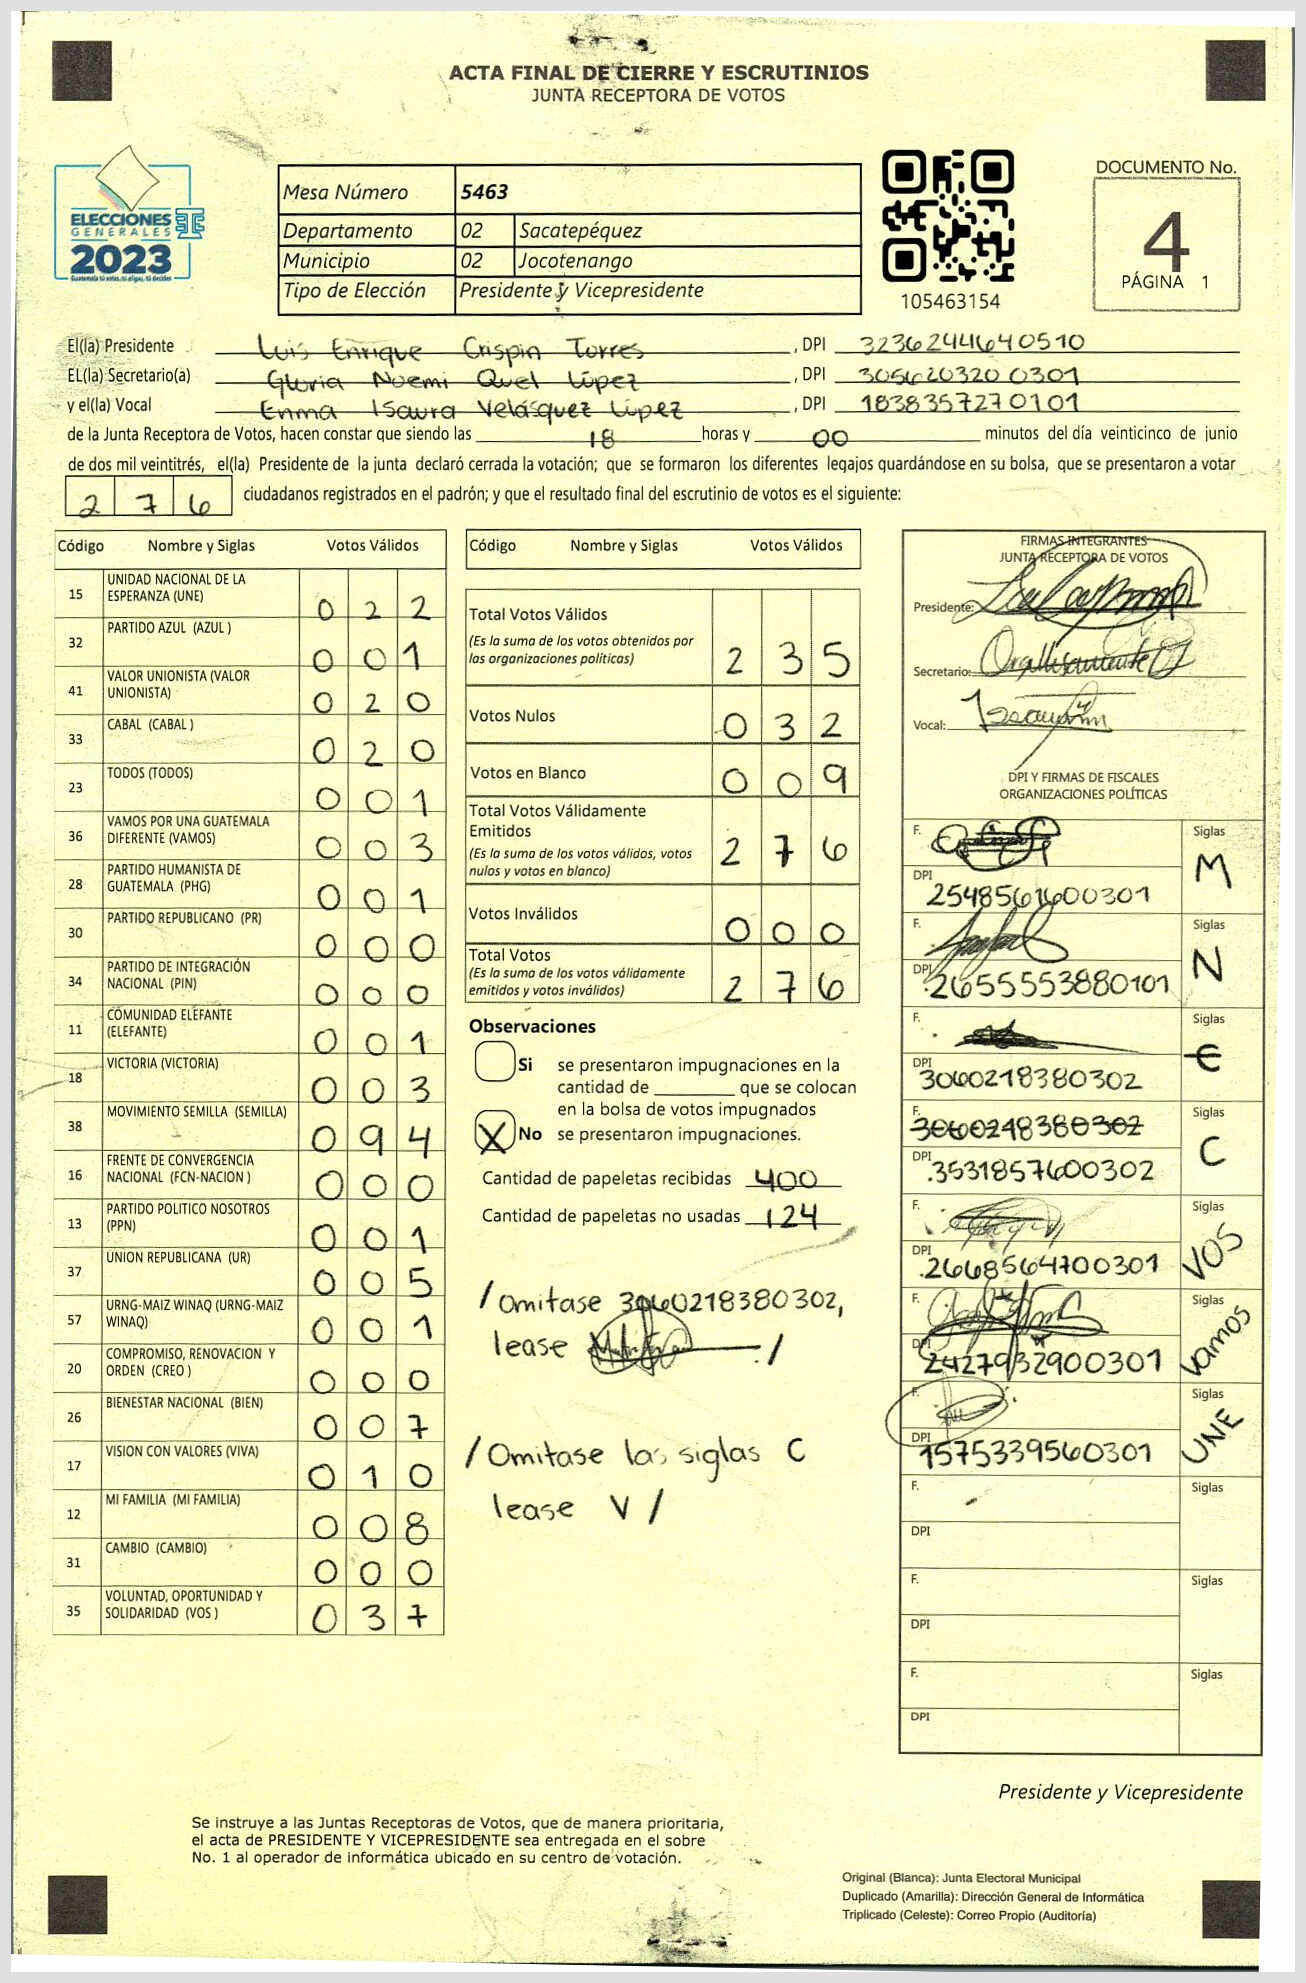 ACTA FINAL DE CIERRE Y ESCRUTINIOS
JUNTA RECEPTORA DE VOTOS
ELECCIONES
GENERALES
2023
Mesa Número 5463
Departamento 02 Sacatepéquez
Municipio 02 Jocotenango
Tipo de Elección Presidente y Vicepresidente
105463154
DOCUMENTO No.
4
PÁGINA 1
El(la) Presidente Luis Enrique Crispin Torres, DPI 3236244640510
EL(la) Secretario(a) Gloria Noemi Quel López, DPI 3056203200301
y el(la) Vocal Enma Isaura Velásquez López, DPI 1838357270101
de la Junta Receptora de Votos, hacen constar que siendo las 18 horas y 00 minutos del día veinticinco de junio
de dos mil veintitrés, el(la) Presidente de la junta declaró cerrada la votación; que se formaron los diferentes legajos guardándose en su bolsa, que se presentaron a votar
276 ciudadanos registrados en el padrón; y que el resultado final del escrutinio de votos es el siguiente:
Código Nombre y Siglas Votos Válidos
15 UNIDAD NACIONAL DE LA
ESPERANZA (UNE) 022
32 PARTIDO AZUL (AZUL ) 001
41 VALOR UNIONISTA (VALOR
UNIONISTA) 020
33 CABAL (CABAL ) 020
23 TODOS (TODOS) 001
36 VAMOS POR UNA GUATEMALA
DIFERENTE (VAMOS) 003
28 PARTIDO HUMANISTA DE
GUATEMALA (PHG) 001
30 PARTIDO REPUBLICANO (PR) 000
34 PARTIDO DE INTEGRACIÓN
NACIONAL (PIN) 000
11 COMUNIDAD ELEFANTE
(ELEFANTE) 001
18 VICTORIA (VICTORIA) 003
38 MOVIMIENTO SEMILLA (SEMILLA) 094
16 FRENTE DE CONVERGENCIA
NACIONAL (FCN-NACION ) 000
13 PARTIDO POLITICO NOSOTROS
(PPN) 001
37 UNION REPUBLICANA (UR) 005
57 URNG-MAIZ WINAQ (URNG-MAIZ
WINAQ) 001
20 COMPROMISO, RENOVACION Y
ORDEN (CREO ) 000
26 BIENESTAR NACIONAL (BIEN) 007
17 VISION CON VALORES (VIVA) 010
12 MI FAMILIA (MI FAMILIA) 008
31 CAMBIO (CAMBIO) 000
35 VOLUNTAD, OPORTUNIDAD Y
SOLIDARIDAD (VOS ) 037
Código Nombre y Siglas Votos Válidos
Total Votos Válidos
(Es la suma de los votos obtenidos por
las organizaciones políticas) 235
Votos Nulos 032
Votos en Blanco 009
Total Votos Válidamente
Emitidos
(Es la suma de los votos válidos, votos
nulos y votos en blanco) 276
Votos Inválidos 000
Total Votos
(Es la suma de los votos válidamente
emitidos y votos inválidos) 276
Observaciones
Si se presentaron impugnaciones en la
cantidad de ________ que se colocan
en la bolsa de votos impugnados
X No se presentaron impugnaciones.
Cantidad de papeletas recibidas 400
Cantidad de papeletas no usadas 124
/Omitase 3060218380302,
lease /
/Omitase las siglas C
lease V /
FIRMAS INTEGRANTES
JUNTA RECEPTORA DE VOTOS
Presidente:
Secretario:
Vocal:
DPI Y FIRMAS DE FISCALES
ORGANIZACIONES POLÍTICAS
F. Siglas
DPI 2548561600301 M
F. Siglas
DPI 2655553880101 N
F. Siglas
DPI 3060218380302 E
F. 3060218380302 Siglas
DPI 3531857600302 C
F. Siglas
DPI 2668564700301 VOS
F. Siglas
DPI 2427932900301 Vamos
F. Siglas
DPI 1575339560301 UNE
F. Siglas
DPI
F. Siglas
DPI
F. Siglas
DPI
Presidente y Vicepresidente
Se instruye a las Juntas Receptoras de Votos, que de manera prioritaria,
el acta de PRESIDENTE Y VICEPRESIDENTE sea entregada en el sobre
No. 1 al operador de informática ubicado en su centro de votación.
Original (Blanca): Junta Electoral Municipal
Duplicado (Amarilla): Dirección General de Informática
Triplicado (Celeste): Correo Propio (Auditoría)